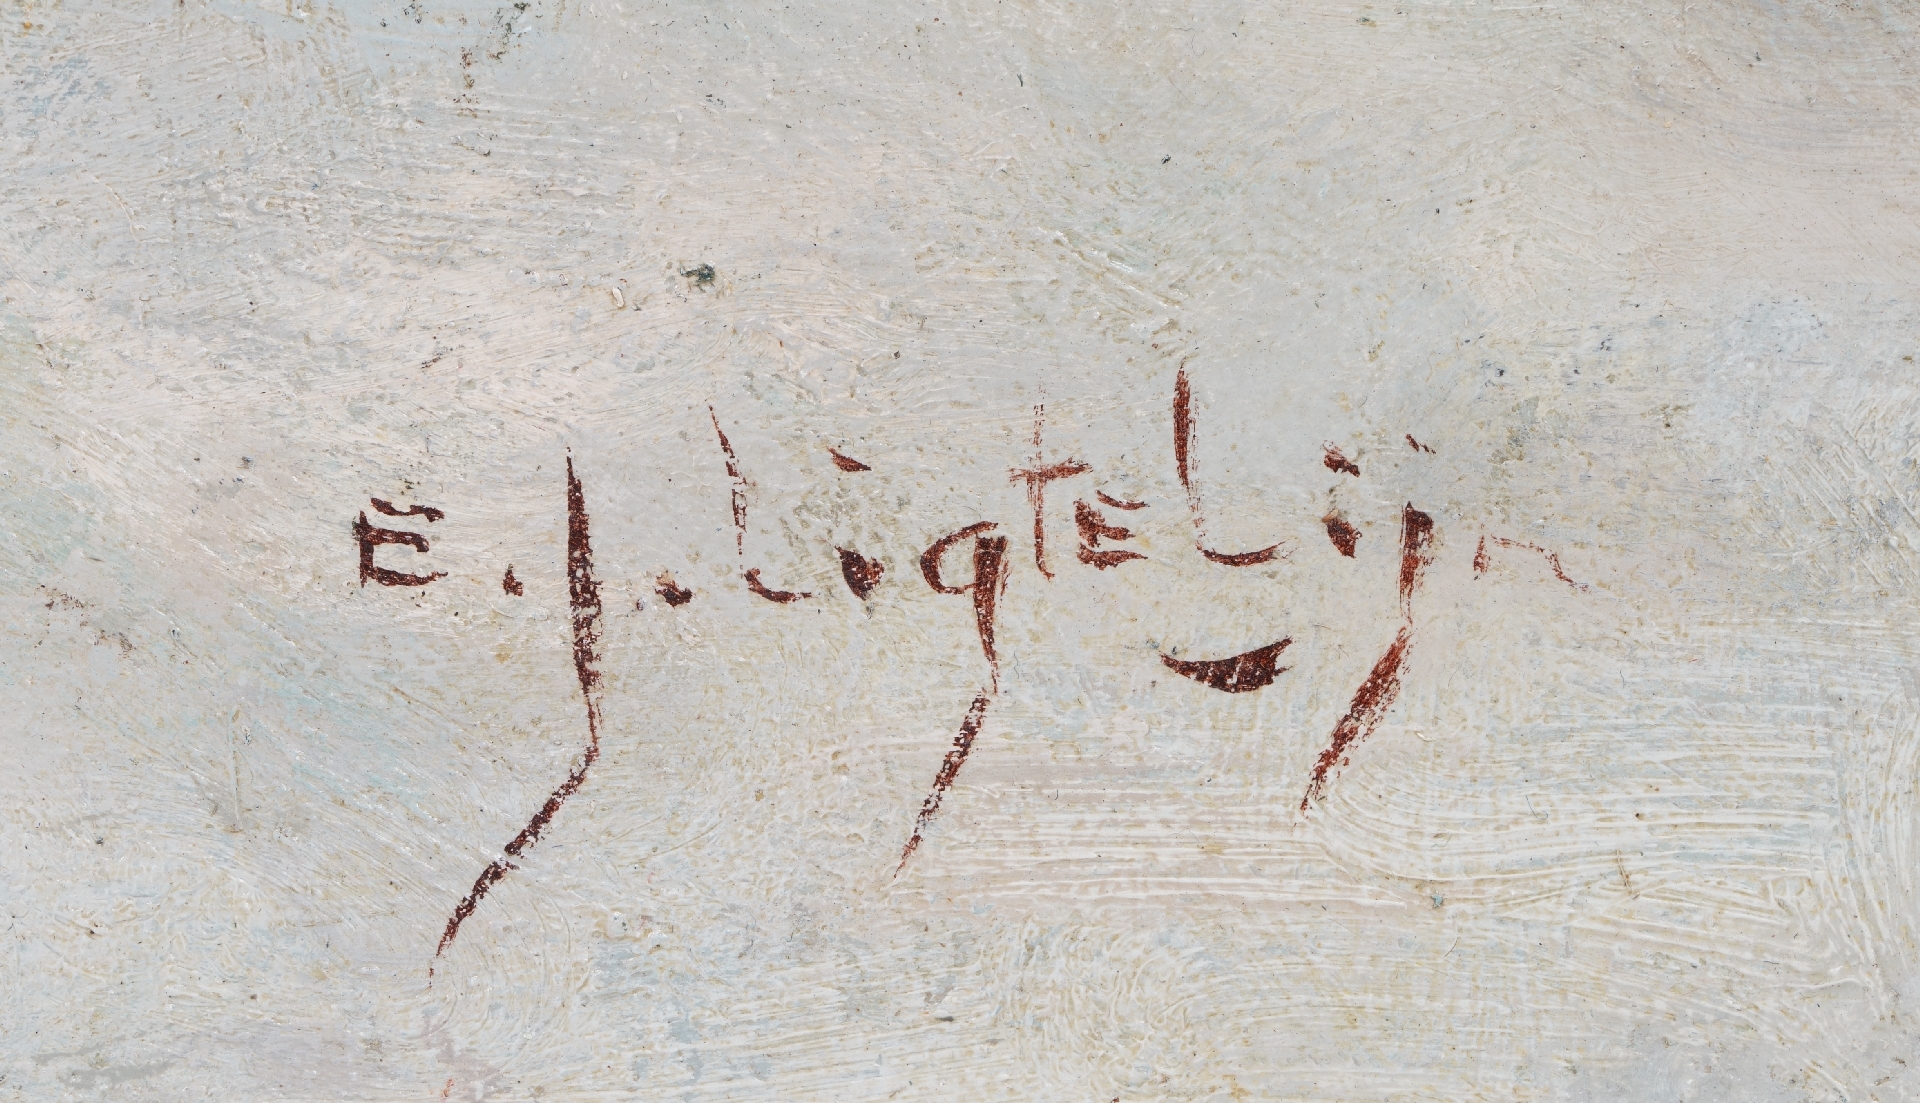 E. J. Ligtelijn